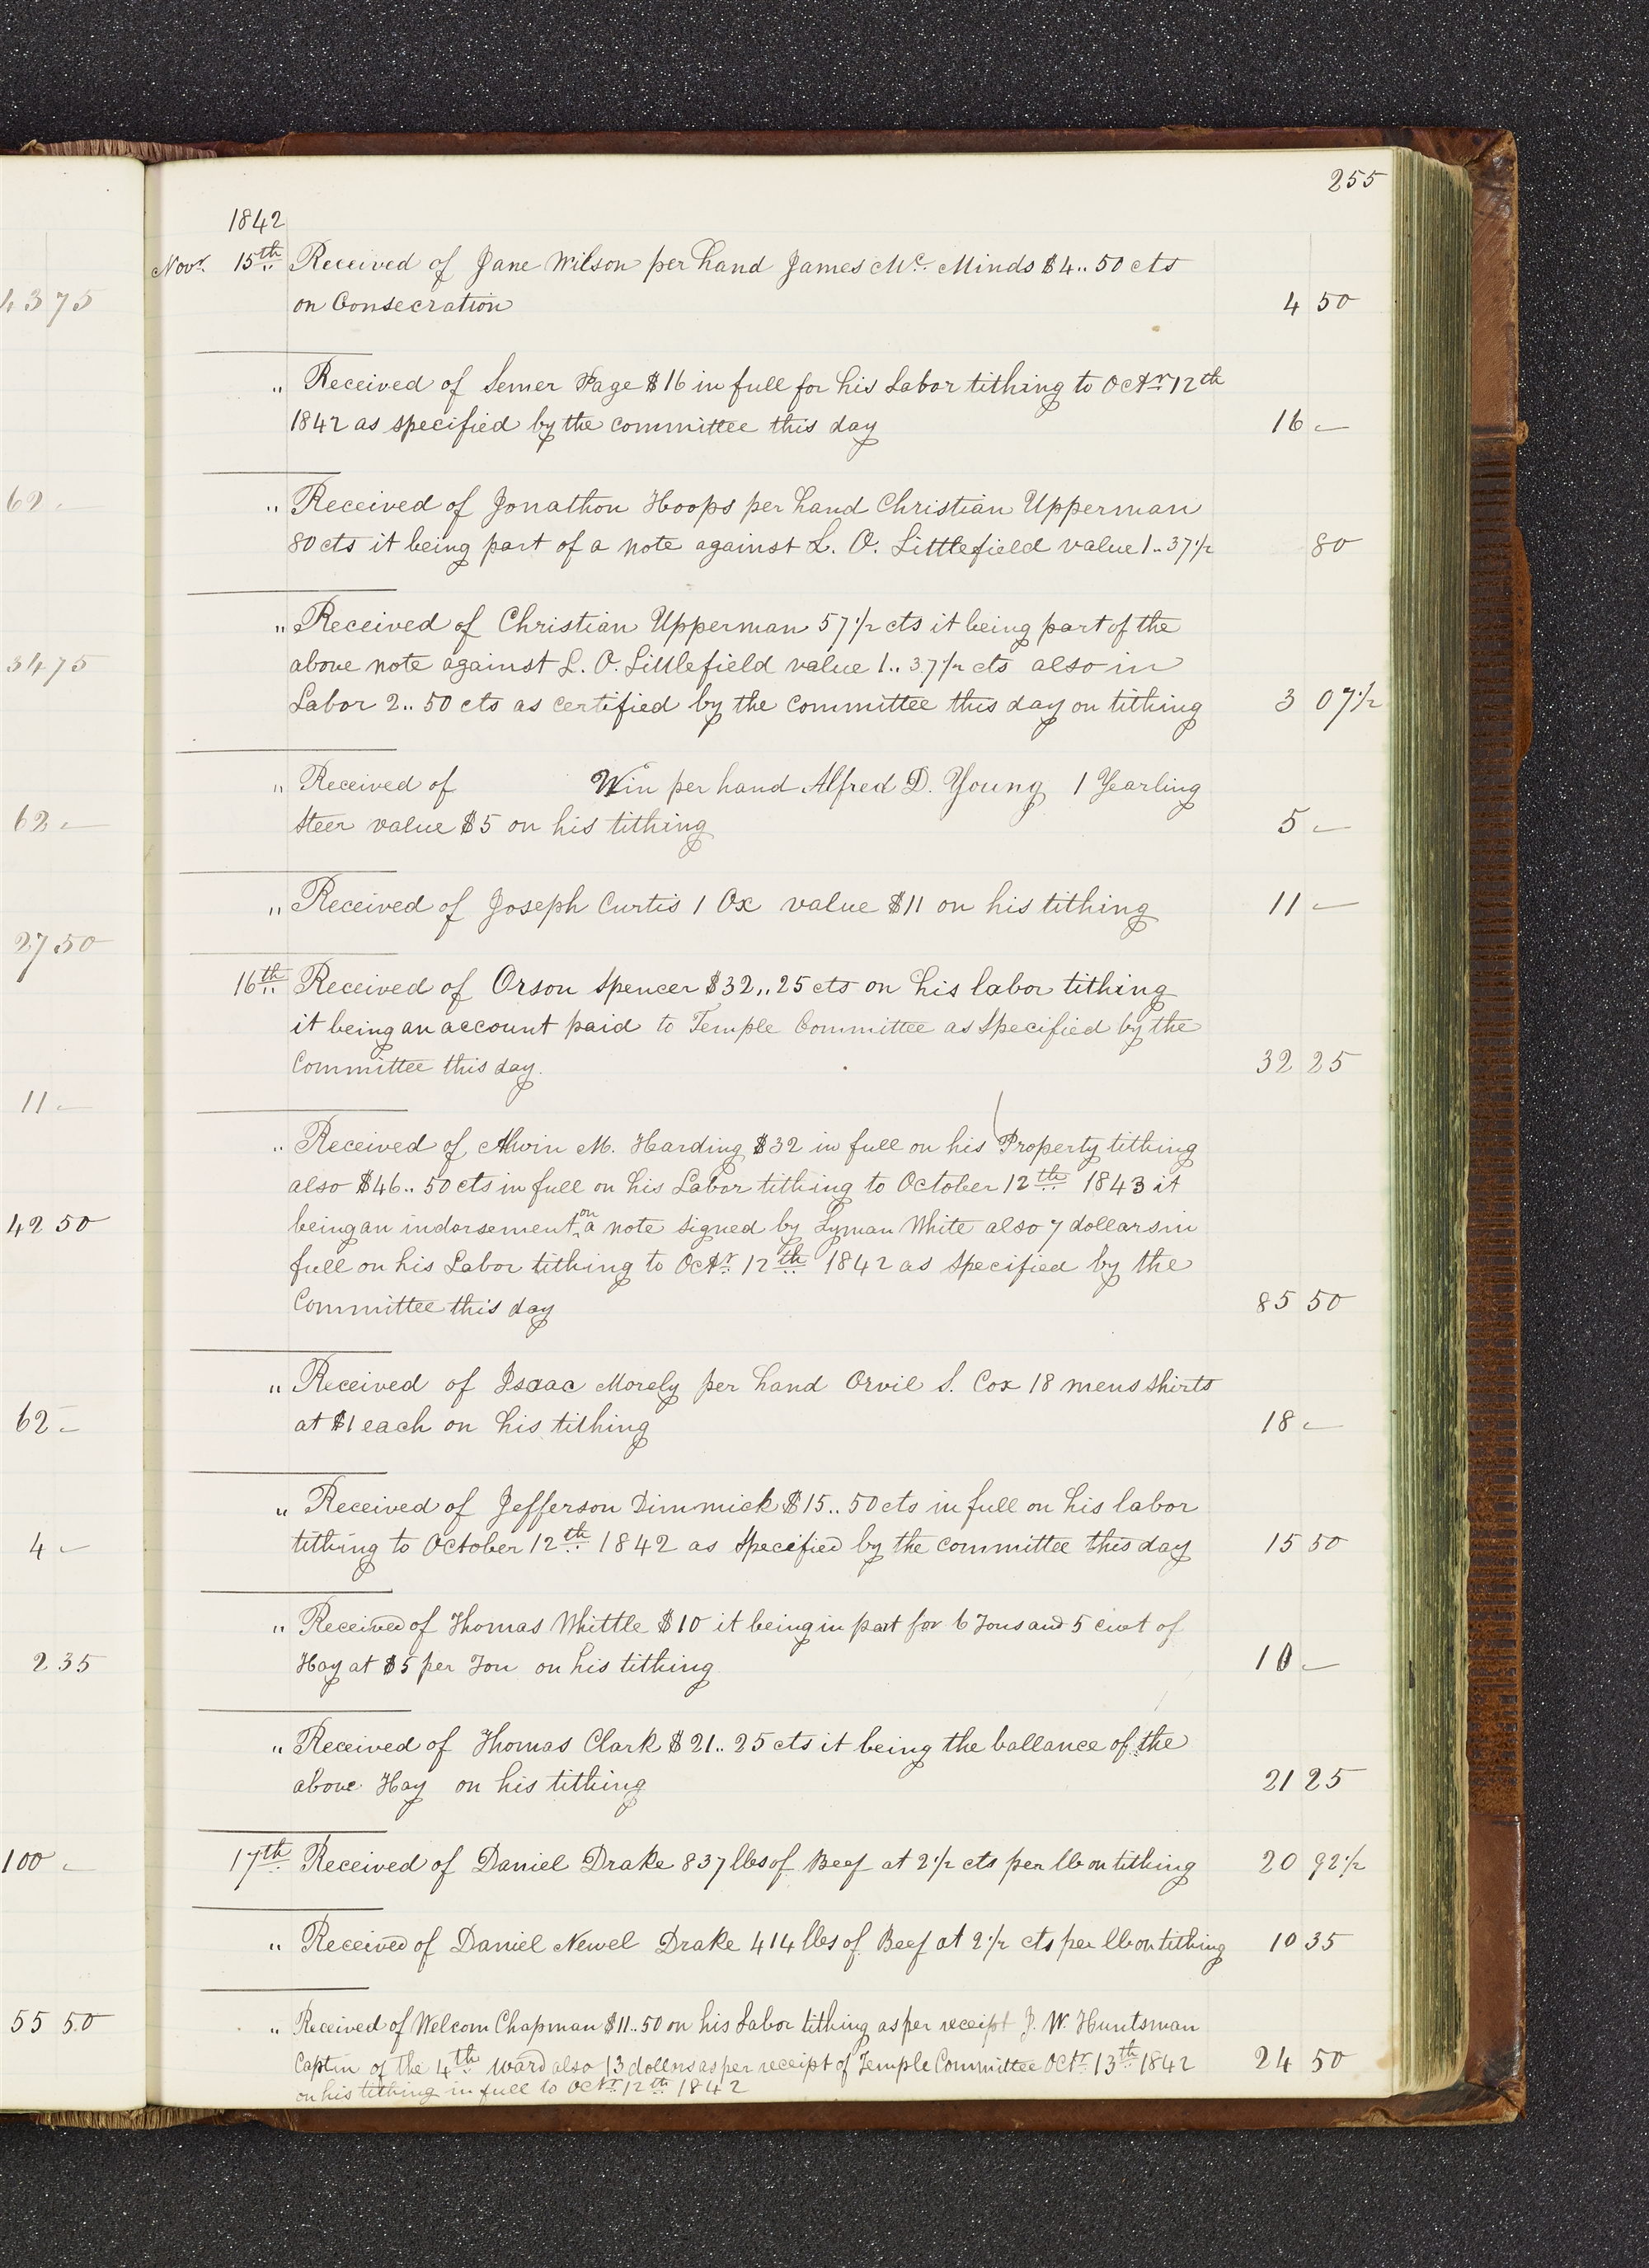 255
1842
Novr. 15th Received of Jane Wilson per hand James Mc. Minds $4..50 cts
on Consecration 4 50
" Received of Semer Page $16 in full for his Labor tithing to Octr 12th
1842 as specified by the committee this day 16 -
" Received of Jonathon Hoops per hand Christian Upperman
80 cts it being part of a note against L. O. Littlefield value 1..37 1/2 80
" Received of Christian Upperman 57 1/2 cts it being part of the
above note against L. O. Littlefield value 1..37 1/2 cts also in
Labor 2..50 cts as certified by the committee this day on tithing 3 07 1/2
" Received of Win per hand Alfred D. Young 1 Yearling
steer value $5 on his tithing 5 -
" Received of Joseph Curtis 1 Ox value $11 on his tithing 11 -
16th Received of Orson Spencer $32..25 cts on his labor tithing
it being an account paid to Temple Committee as specified by the
Committee this day. 32 25
" Received of Alwin M. Harding $32 in full on his Property tithing
also $46..50 cts in full on his Labor tithing to October 12th 1843 it
being an indorsement on a note signed by Lyman White also 7 dollars in
full on his Labor tithing to Octr. 12th 1842 as specified by the
Committee this day 85 50
" Received of Isaac Morely per hand Orvil S. Cox 18 mens shirts
at $1 each on his tithing 18 -
" Received of Jefferson Dimmick $15..50 cts in full on his labor
tithing to October 12th 1842 as specified by the committee this day 15 50
" Received of Thomas Whittle $10 it being in part for 6 Tons and 5 cwt of
Hay at $5 per Ton on his tithing 10 -
" Received of Thomas Clark $21..25 cts it being the ballance of the
above Hay on his tithing 21 25
17th Received of Daniel Drake 837 lbs of Beef at 2 1/2 cts per lb on tithing 20 92 1/2
" Received of Daniel Newel Drake 414 lbs of Beef at 2 1/2 cts per lb on tithing 10 35
" Received of Welcom Chapman $11..50 on his Labor tithing as per receipt J. W. Huntsman
Captin of the 4th ward also 13 dollers as per receipt of Temple Committee Octr 13th 1842 24 50
on his tithing in full to Octr. 12th 1842
43 75
62 -
34 75
62 -
27 50
11 -
42 50
62 -
4 -
2 35
100 -
55 50